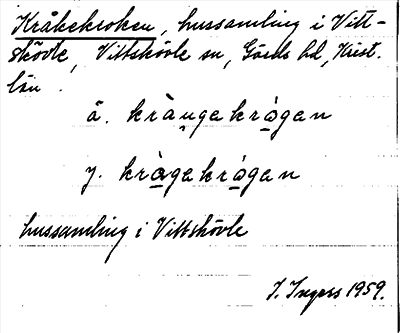 Kråkekroken, hussamling i Vitt-
skövle, Vittskövle sn, Gärds hd, Krist.
län.
ä. krångekrogen
y. krågekrogen
hussamling i Vittskövle
I. Ingers 1959.